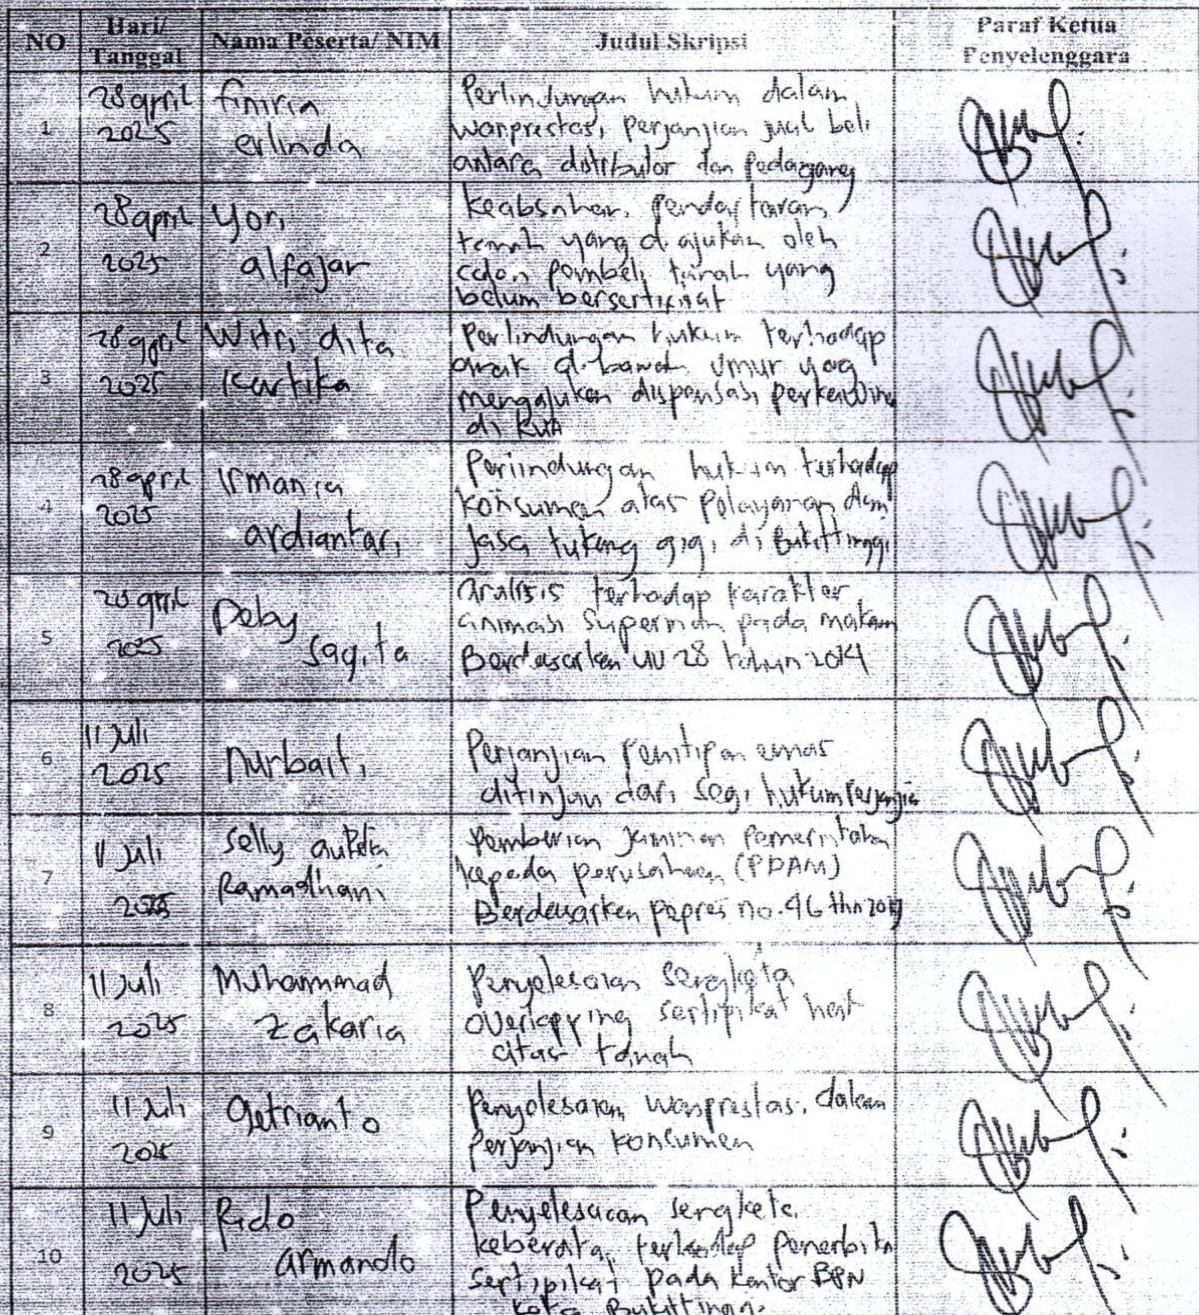 NO
Hari/
Tanggal
Nama Peserta/ NIM
Judul Skripsi
Paraf Ketua
Penyelenggara
1
28 april
2025
finiria
erlinda
Perlindungan hukum dalam
wanprestasi perjanjian jual beli
antara distributor dan pedagang
2
28 april
2025
yori
alfajar
keabsahan pendaftaran
tanah yang diajukan oleh
calon pembeli tanah yang
belum bersertifikat
3
28 april
2025
Witri dita
kartika
Perlindungan hukum terhadap
anak di bawah umur yang
mengajukan dispensasi perkawinan
di KUA
4
28 april
2025
Irmania
ardiantari
Perlindungan hukum terhadap
konsumen atas pelayanan dan
jasa tukang gigi di Bukittinggi
5
28 april
2025
Deby
Sagita
analisis terhadap karakter
animasi superman pada makam
Berdasarkan UU 28 tahun 2014
6
11 Juli
2025
Nurbaiti
Perjanjian penitipan emas
ditinjau dari segi hukum Perjanjia
7
11 Juli
2025
Selly
Ramadhani
Pemberian Jaminan pemerintah
kepada perusahaan (PDAM)
Berdasarkan Pepres no. 46 thn 2019
8
11 Juli
2025
Muhammad
Zakaria
Penyelesaian sengketa
overlapping sertipikat hak
atas tanah
9
11 Juli
2025
getrianto
Penyelesaian wanprestasi dalam
perjanjian konsumen
10
11 Juli
2025
Rido
armando
Penyelesaian sengketa
keberatan terhadap penerbita
sertipikat pada kantor BPN
kota Bukittinggi